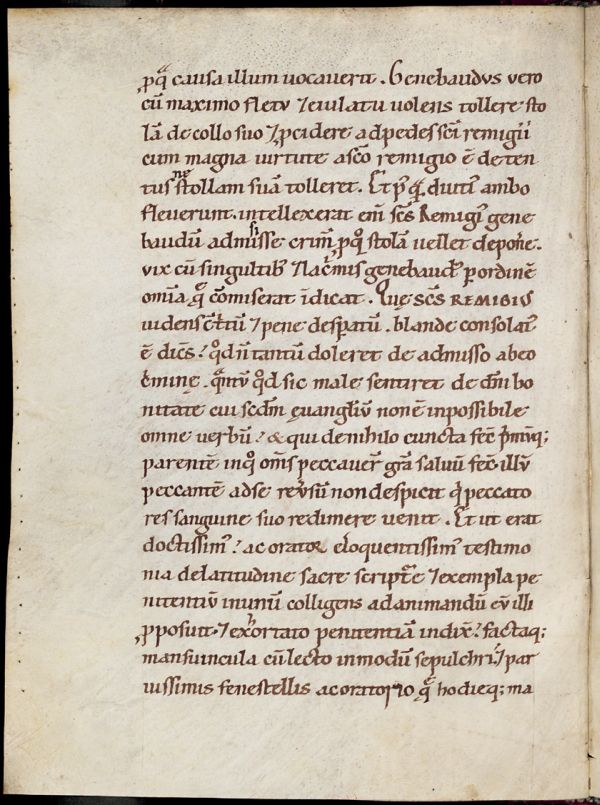 ꝓq̃ causa illum uocauerit. Genebaudus uero
cū maximo fletu ⁊ eiulatu uolens tollere sto
lā de collo suo ⁊ ꝓcidere ad pedes sc̄i remigii
cum magna uirtute a sc̄o remigio ē deten
tus ne stollam suā tolleret. Et p̄q̃ diuti᷒ ambo
fleuerunt. intellexerat eni᷒ sc̄s Remigi᷒ gene
baudū admisisse crim̄ ꝓ qͦ stolā uellet depon̄e.
uix cū singultib᷒ ⁊ lacͥmis genebaud᷒ ꝑ ordinē
omīa q̃ cōmiserat īdicat. Quē sc̄s REMIGIUS
uidens ⁊ pene despatū. blande consolat᷒
ē dicēs? qd̄ n̄ tantū doleret de admisso abeo
cͥmine. q̃ntū qͦd sic male sentiret de dn̄i bo
nitate cui scd̄m ęuangliū non ē inpossibile
omne uerbū? & qui de nihilo cuncta fec̄
parentē in qͦ om̄s peccauer̄ gr̄a saluū fec̄. illū
peccantē ad se reūsū non despicit qͥ peccato
res sanguine suo redimere uenit. Et ut erat
doctissim᷒? ac orator eloquentissim᷒ testimo
nia de latitudine sacre script̄e ⁊ exempla pe
nitentiū in unū colligens ad animandū eū illi
ꝓposuit. ⁊ exhortato penitentiā indix̄? factaq;
mansiuncula cū lecto in modū sepulchri. ⁊ par
uissimis fenestellis ac oratorio q̃ hodieq; ma